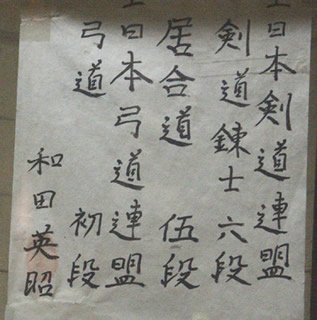 日本剣道連盟
剣道錬士 六段
居合道 伍段
日本弓道連盟
弓道 初段
和田英昭